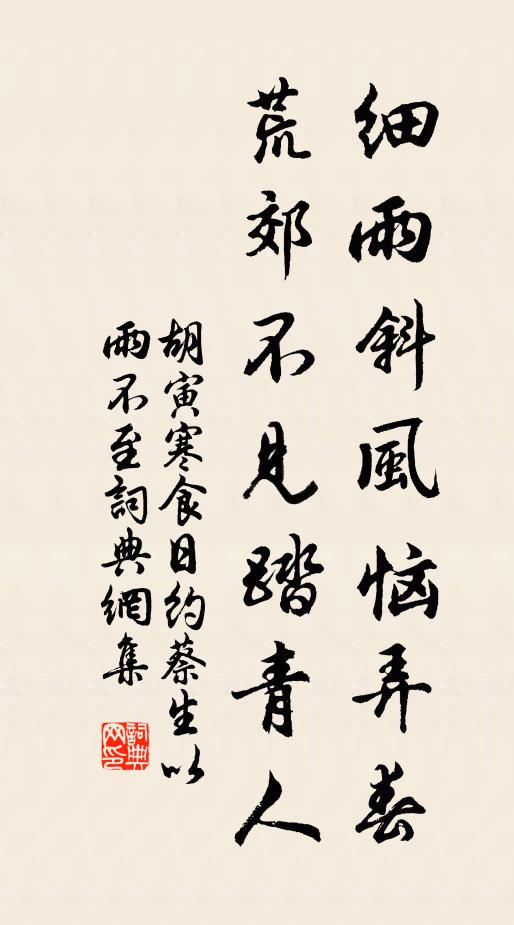 细雨斜風恼弄春
荒郊不见踏青人
胡寅寒食日约蔡生以
雨不至詞典網集
詞典
网印